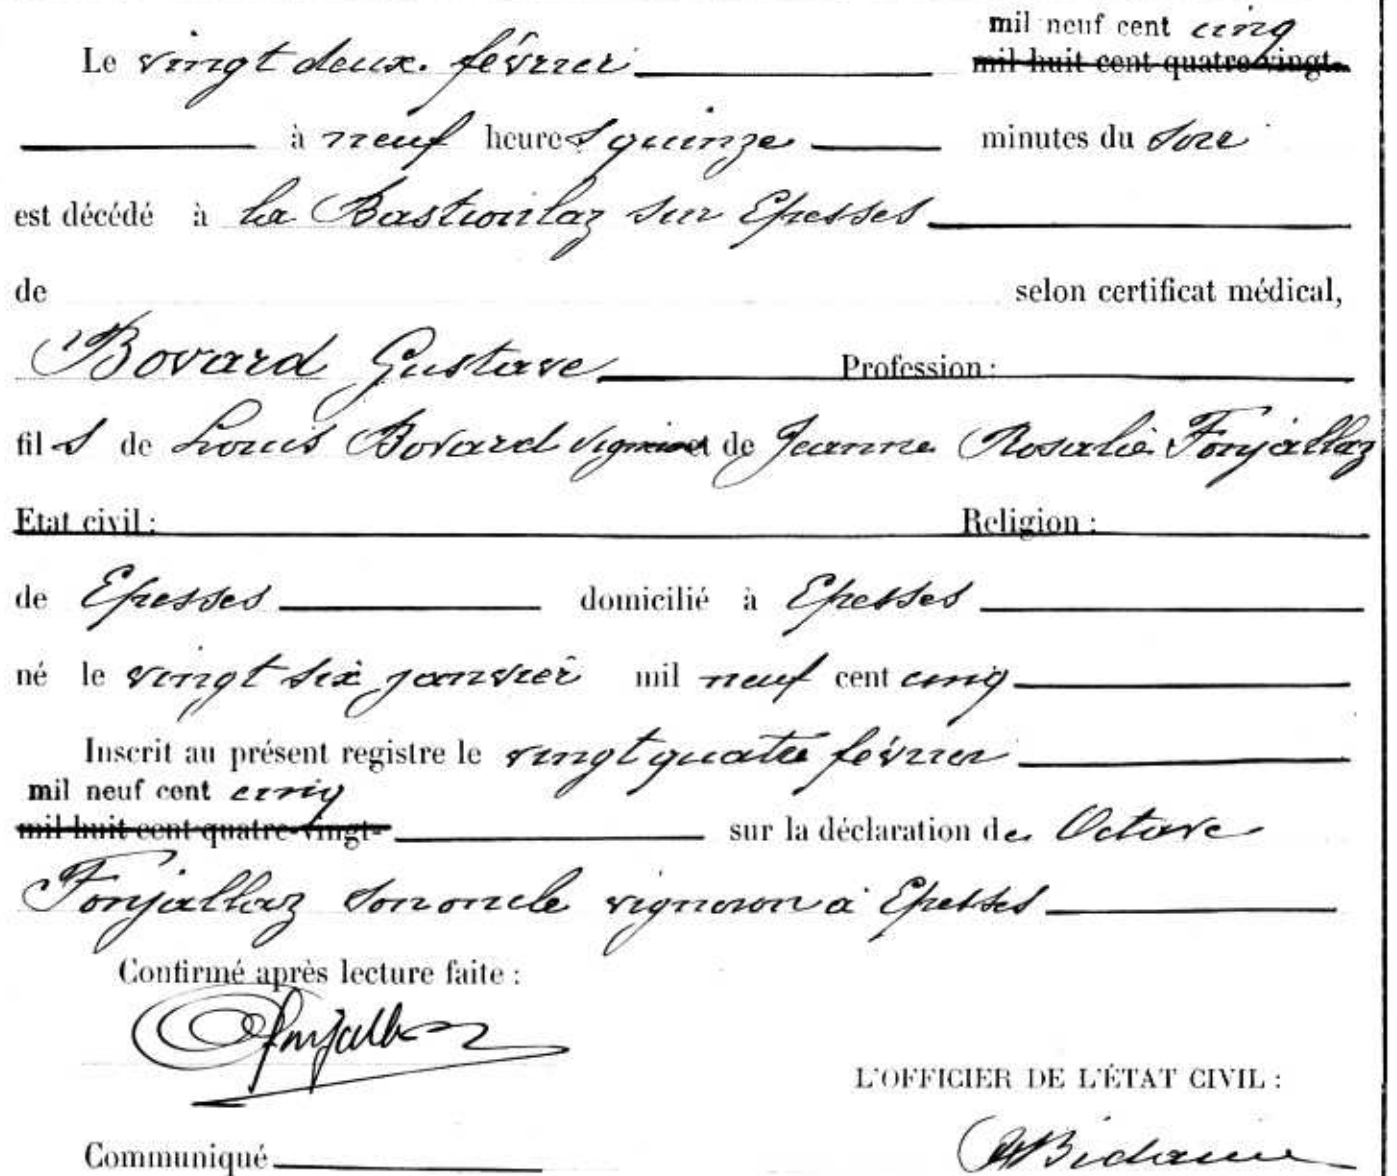 mil neuf cent cinq
Le vingt deux. février mil huit cent quatre-vingt-
à neuf heures quinze minutes du soir
est décédé à la Bastionlaz sur Epesses
de selon certificat médical,
Bovard Gustave Profession :
fils de Louis Bovard vigneron et de Jeanne Rosalie Fonjallaz
Etat civil : Religion :
de Epesses domicilié à Epesses
né le vingt six janvier mil neuf cent cinq
Inscrit au présent registre le vingt quatre février
mil neuf cent cinq
mil huit cent quatre-vingt- sur la déclaration de Octave
Fonjallaz son oncle vigneron à Epesses
Confirmé après lecture faite :
O Fonjallaz
L'OFFICIER DE L'ÉTAT CIVIL :
Communiqué